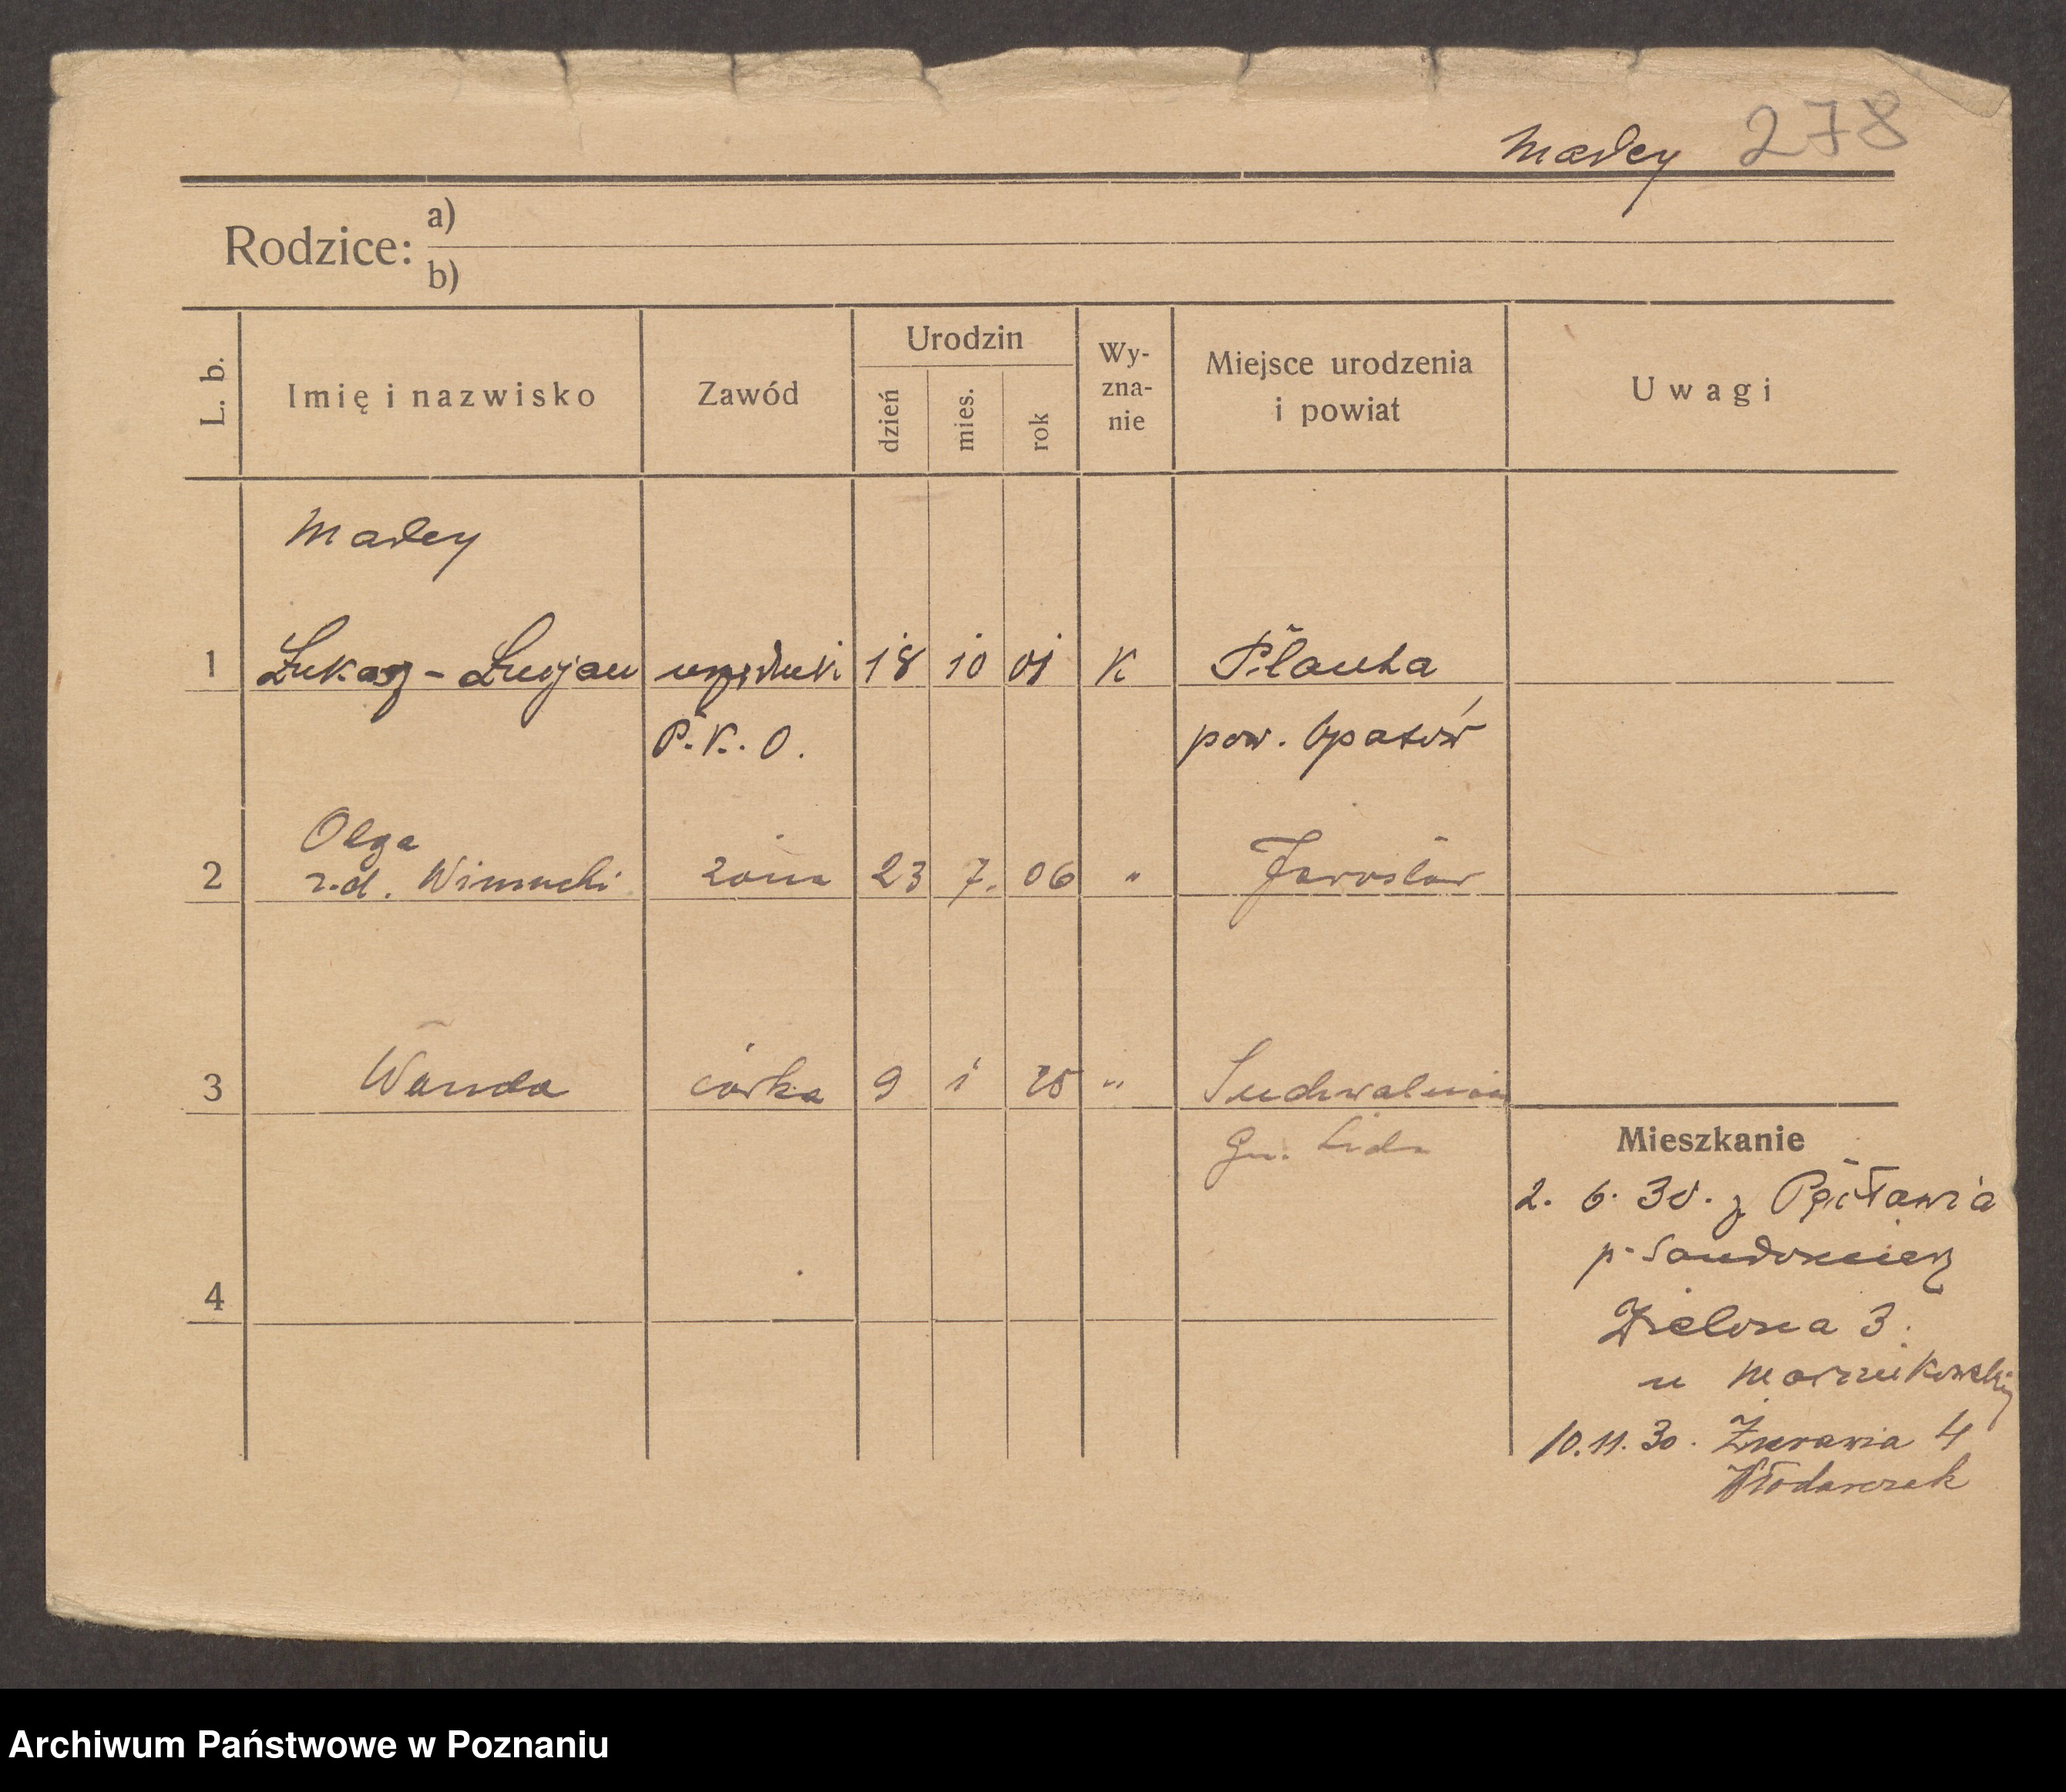 Madey 278
Rodzice: a)
b)
L. b.
Imię i nazwisko
Zawód
Urodzin
dzień
mies.
rok
Wy-
zna-
nie
Miejsce urodzenia
i powiat
Uwagi
Madey
1 Łukasz - Lucjan 18 10 01 K
P. K. O. pow. Opatów
Olga
2 żona 23 7. 06 " Jarosław
3 Wanda córka 9 1 "
Lida
4
Mieszkanie
2. 6. 30. z
p. Sandomierz
Zielona 3.
u
10.11.30. Żurawia 4
Włodarczak
Archiwum Państwowe w Poznaniu